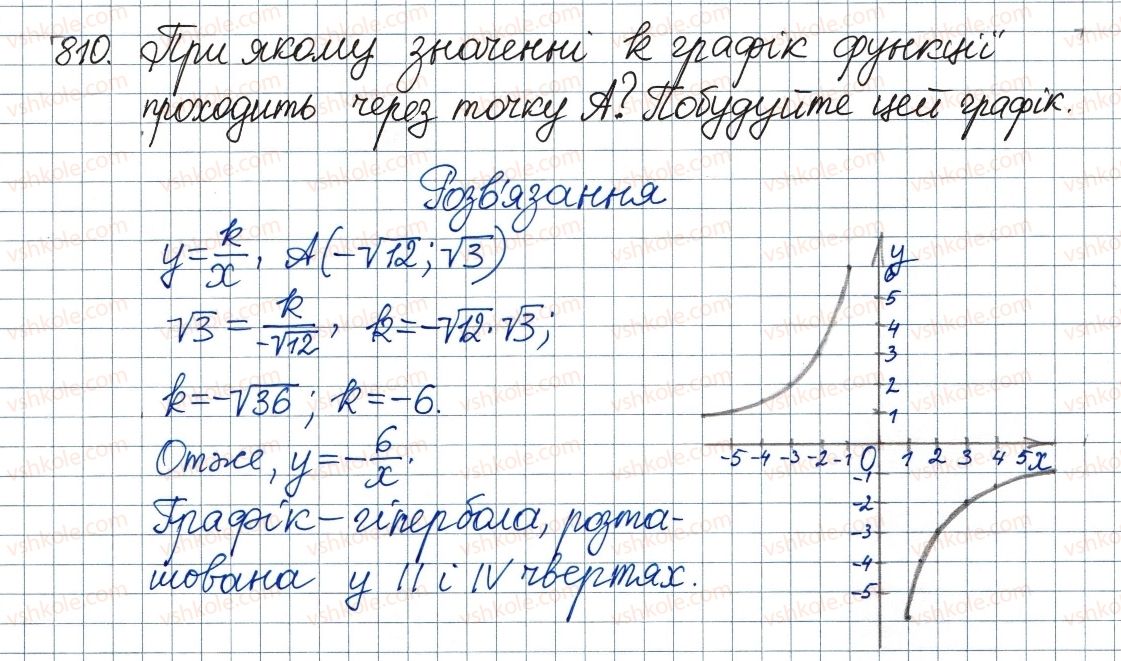 810. При якому значенні k графік функції
проходить через точку А? Побудуйте цей графік.
Розв'язання
y = k/x, A(-√12; √3)
√3 = k/-√12, k = -√12 · √3;
k = -√36; k = -6.
Отже, y = -6/x.
Графік - гіпербола, розта-
шована у II і IV чвертях.
y
6
5
4
3
2
1
-5 -4 -3 -2 -1 0 1 2 3 4 5 x
-1
-2
-3
-4
-5
vshkole.com